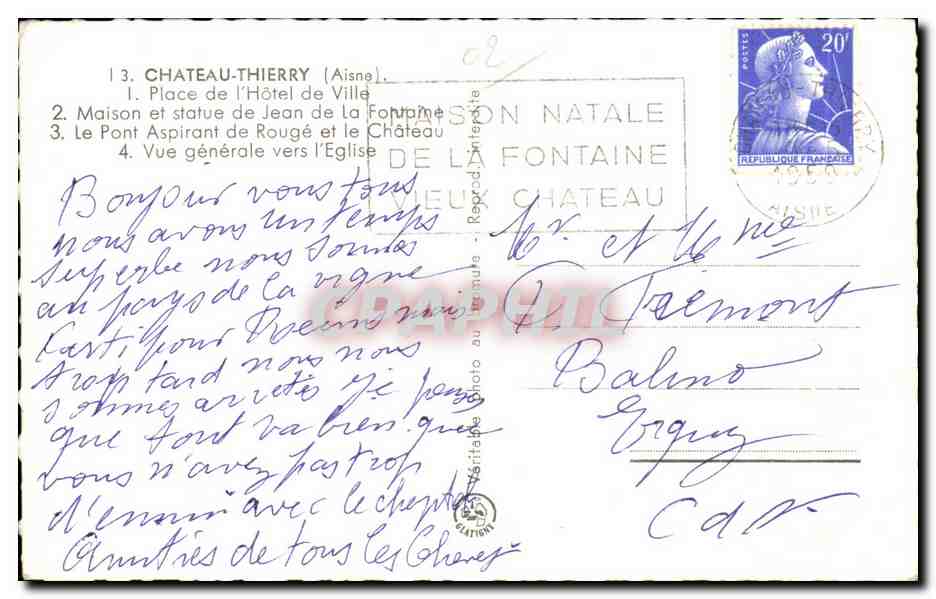 02
13. CHATEAU-THIERRY (Aisne).
1. Place de l'Hôtel de Ville
2. Maison et statue de Jean de La Fontaine
3. Le Pont Aspirant de Rougé et le Château
4. Vue générale vers l'Eglise
MAISON NATALE
DE LA FONTAINE
VIEUX CHATEAU
POSTES
20F
REPUBLIQUE FRANÇAISE
AISNE
Bonjour vous tous
nous avons un temps
superbe nous sommes
au pays de la vigne
Parti pour Reims mais
trop tard nous nous
sommes arretés et je pense
que tout va bien que
vous n'avez pas trop
d'ennui avec le cheptel
Amitiés de tous les
Véritable photo au bromure - Reprod. interdite
GLATIGNY
CPAPHIL
Mr et Mme
Tremont
Erquy
C d N